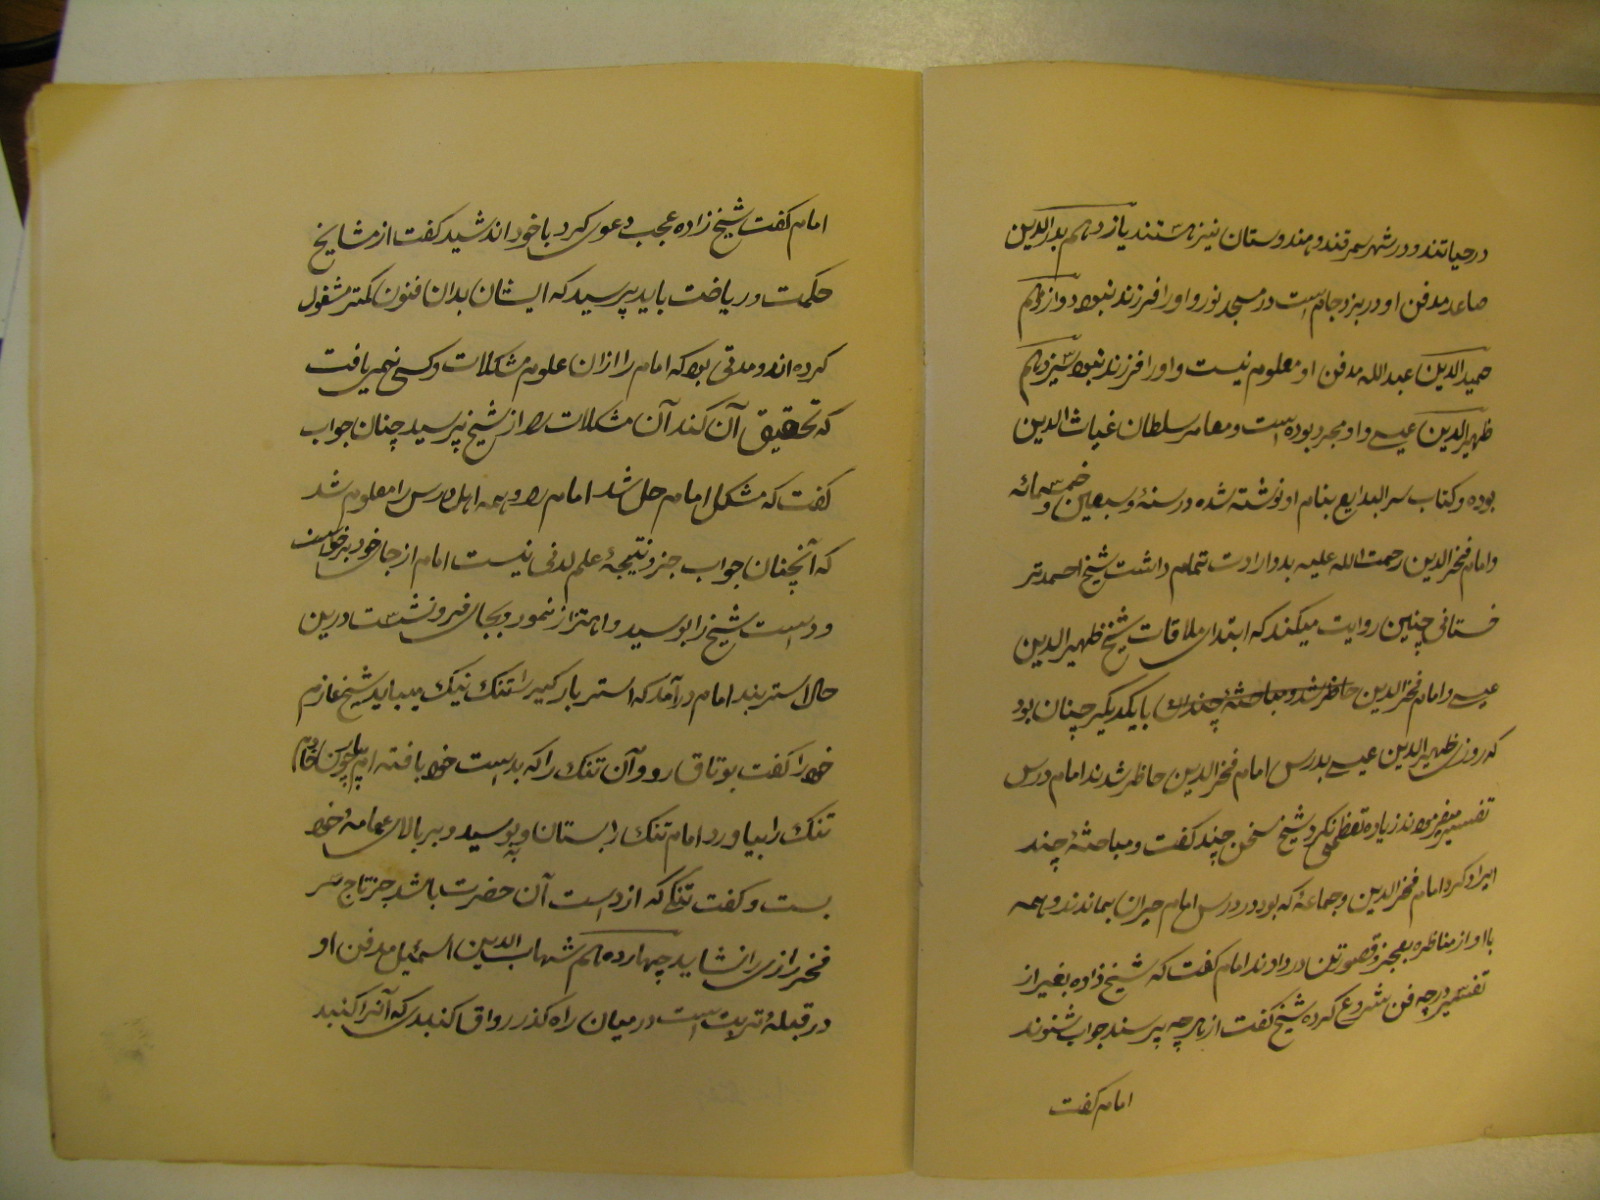 در حیاتند و در شهر سمرقند و هندوستان نیز هستند یازدهم بدرالدین
صاعد مدفن او در بزد جام است در مسجد نور و او را فرزند نبود دوازدهم
حمیدالدین عبدالله مدفن او معلوم نیست و او را فرزند نبود سیزدهم
ظهیرالدین عیسی و او مجرد بوده است و معاصر سلطان غیاث الدین
بوده و کتاب سرالبدایع بنام او نوشته شده در سنهٔ و سبعین و خمسمائه
و امام فخرالدین رحمت الله علیه بدو ارادت تمام داشت شیخ احمد تر
خستانی چنین روایت میکند که ابتدای ملاقات شیخ ظهیرالدین
عیسی و امام فخرالدین حاظر شد و مباحثهٔ چندان با یکدیگر چنان بود
که روزی ظهیرالدین عیسی بدرس امام فخرالدین حاظر شدند امام درس
تفسیر میفرمودند زیاده تعظیمی نکرد شیخ سخن چند گفت و مباحثهٔ چند
ایراد کرد امام فخرالدین و جماعهٔ که بود در درس امام حیران بماندند و همه
با او از مناظره بعجز و قصور تن در دادند امام گفت که شیخ ذاده بغیر از
تفسیر در چه فن شروع کرده شیخ گفت از هر چه پرسند جواب شنوند
امام گفت
امام گفت شیخ زاده عجب دعوی کرد با خود اندشید گفت از مشایخ
حکمت و ریاضت باید پرسید که ایشان بدان فنون کمتر مشغول
کرده اند و مدتی بود که امام را ازان علوم مشکلات و کسی نمی یافت
که تحقیق آن کند آن مشکلات را از شیخ پرسید چنان جواب
گفت که مشکل امام حل شد امام را و همه اهل درس را معلوم شد
که آنچنان جواب جز و نتیجهٔ علم لدنی نیست امام از جای خود برخواست
و دست شیخ را بوسید و اهتزاز نمود و بجای فرو نشست درین
حالا استر بند امام درآمد که استر بار گیر را تنک نیک میباید شیخ عازم
خود را گفت بوتاق رو و آن تنک را که بدست خود بافته ام بیار چون خادم
تنک را بیاورد امام تنک را بستان و ببوسید و ببر بالای عمامهٔ خود
بست و گفت تنگی که از دست آن حضرت باشد جز تاج سر
فخر رازی را نشاید چهاردهم شهاب الدین اسمٰعیل مدفن او
در قبلهٔ تربت است در میان راه گذر رواق گنبدی که آنرا گنبد